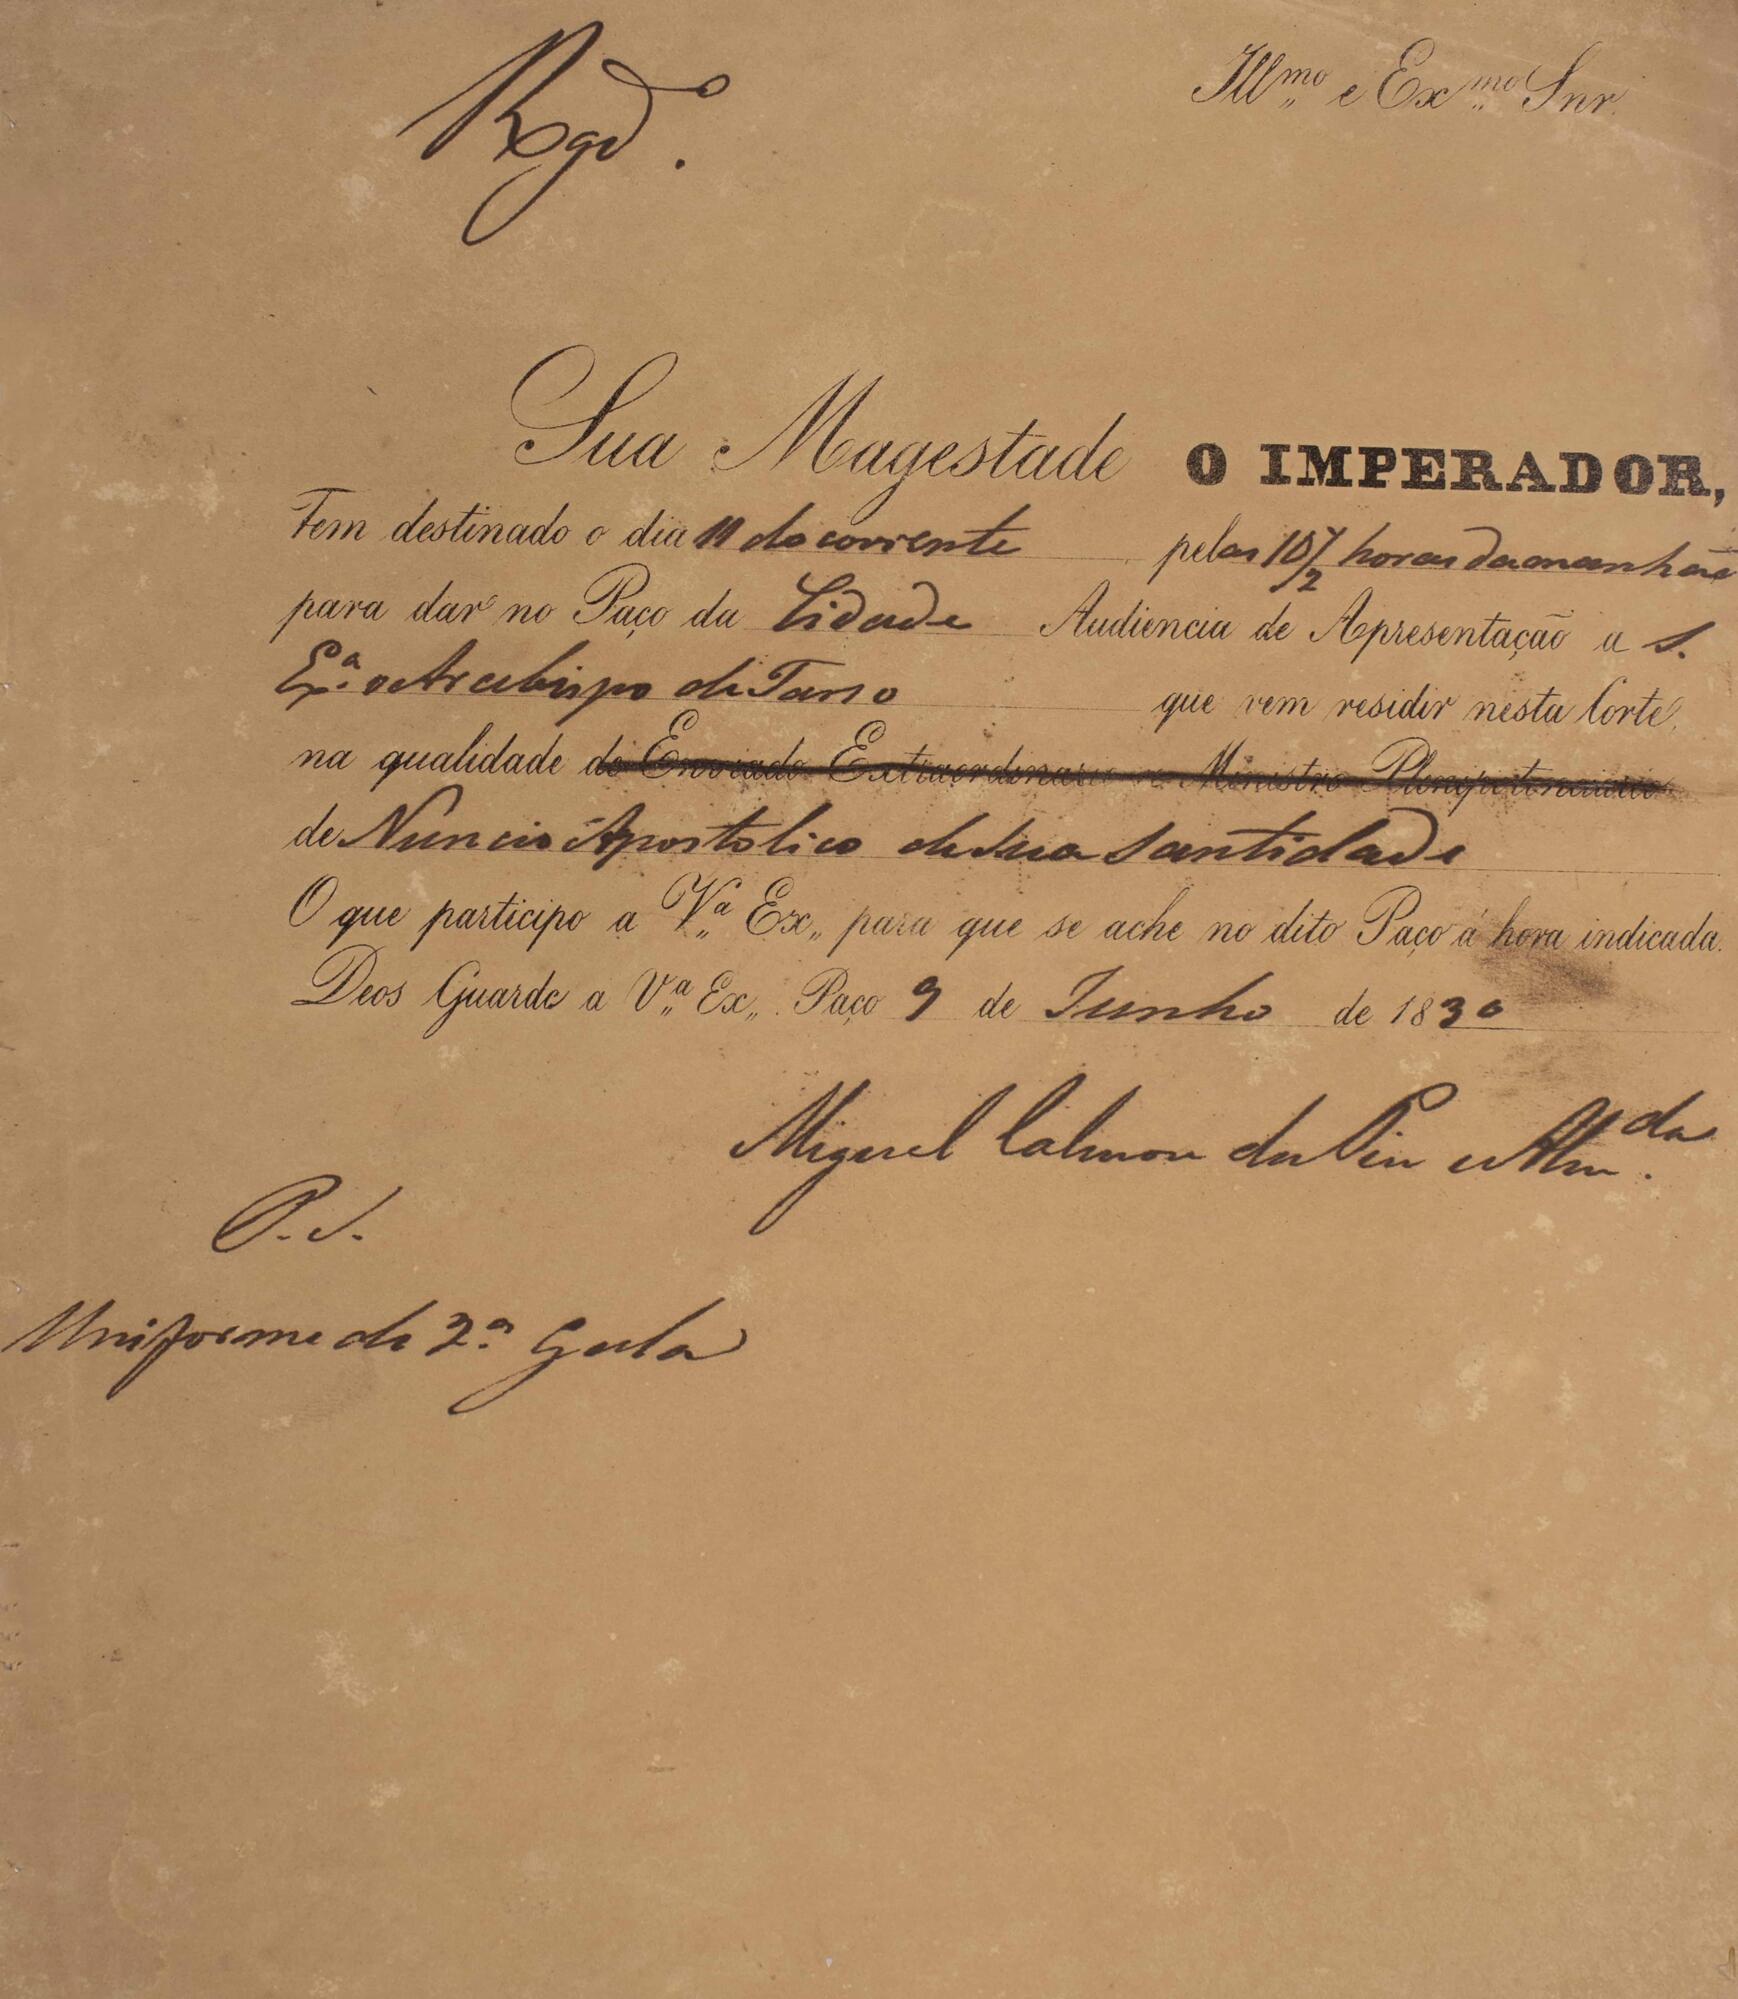 Rgdo.
Illmo e Exmo Snr.
Sua Magestade O IMPERADOR,
Tem destinado o dia 11 do corrente pelas 10 1/2 horas da manhãa
para dar no Paço da Cidade Audiencia de Apresentação a S.
Exa. o Arcebispo de Tarso que vem residir nesta Corte,
na qualidade de Enviado Extraordinario e Ministro Plenipotenciario
de Nuncio Apostolico de Sua Santidade
O que participo a Va Ex,, para que se ache no dito Paço á hora indicada.
Deos Guarde a Va Ex,,. Paço 9 de Junho de 1830
Miguel Calmon du Pin e Almda.
P. S.
Uniforme de 2a. Gala